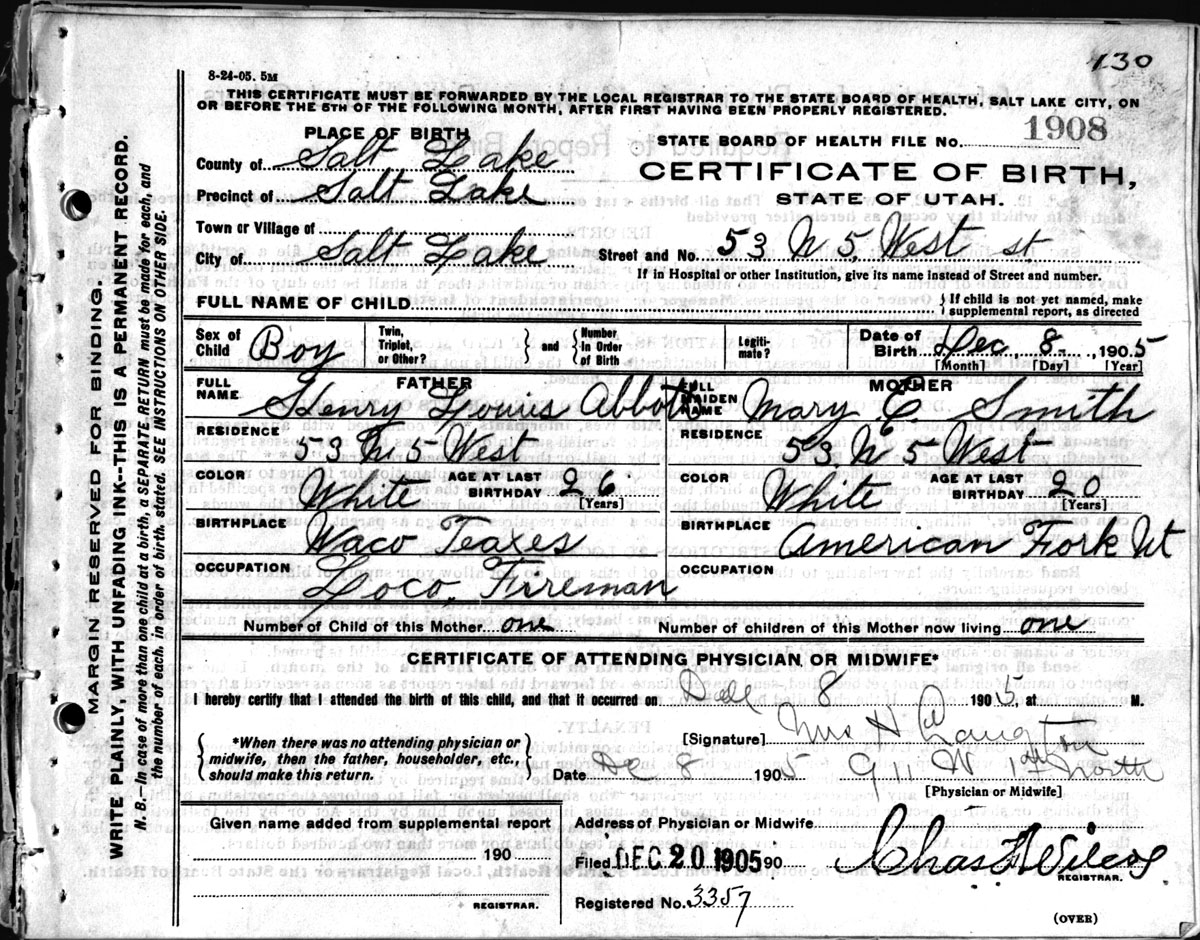 130
8-24-05. 5M
THIS CERTIFICATE MUST BE FORWARDED BY THE LOCAL REGISTRAR TO THE STATE BOARD OF HEALTH, SALT LAKE CITY, ON
OR BEFORE THE 5TH OF THE FOLLOWING MONTH, AFTER FIRST HAVING BEEN PROPERLY REGISTERED.
PLACE OF BIRTH
STATE BOARD OF HEALTH FILE NO. 1908
County of Salt Lake
CERTIFICATE OF BIRTH,
Precinct of Salt Lake
STATE OF UTAH.
Town or Village of
City of Salt Lake Street and No. 53 N 5 West st
If in Hospital or other Institution, give its name instead of Street and number.
FULL NAME OF CHILD { If child is not yet named, make
supplemental report, as directed
Sex of Child Boy Twin, Triplet, or Other? { and } Number In Order of Birth Legiti-mate? Date of Birth Dec. 8 1905
[Month] [Day] [Year]
FATHER MOTHER
FULL NAME Henry Louis Abbott FULL MAIDEN NAME Mary E Smith
RESIDENCE 53 N 5 West RESIDENCE 53 N 5 West
COLOR White AGE AT LAST BIRTHDAY 26 [Years] COLOR White AGE AT LAST BIRTHDAY 20 [Years]
BIRTHPLACE Waco Teaxes BIRTHPLACE American Fork Ut
OCCUPATION Loco. Fireman OCCUPATION
Number of Child of this Mother one Number of children of this Mother now living one
CERTIFICATE OF ATTENDING PHYSICIAN OR MIDWIFE*
I hereby certify that I attended the birth of this child, and that it occurred on 8 1905, at M.
{ *When there was no attending physician or
midwife, then the father, householder, etc.,
should make this return. }
[Signature] Mrs H
Date De 8 1905 911 W 1st North
[Physician or Midwife]
Given name added from supplemental report
190
REGISTRAR.
Address of Physician or Midwife
Filed DEC 20 1905 90 Chas
REGISTRAR.
Registered No. 3357
(OVER)
MARGIN RESERVED FOR BINDING.
WRITE PLAINLY, WITH UNFADING INK--THIS IS A PERMANENT RECORD.
N. B.--In case of more than one child at a birth, a SEPARATE RETURN must be made for each, and
the number of each, in order of birth, stated. SEE INSTRUCTIONS ON OTHER SIDE.